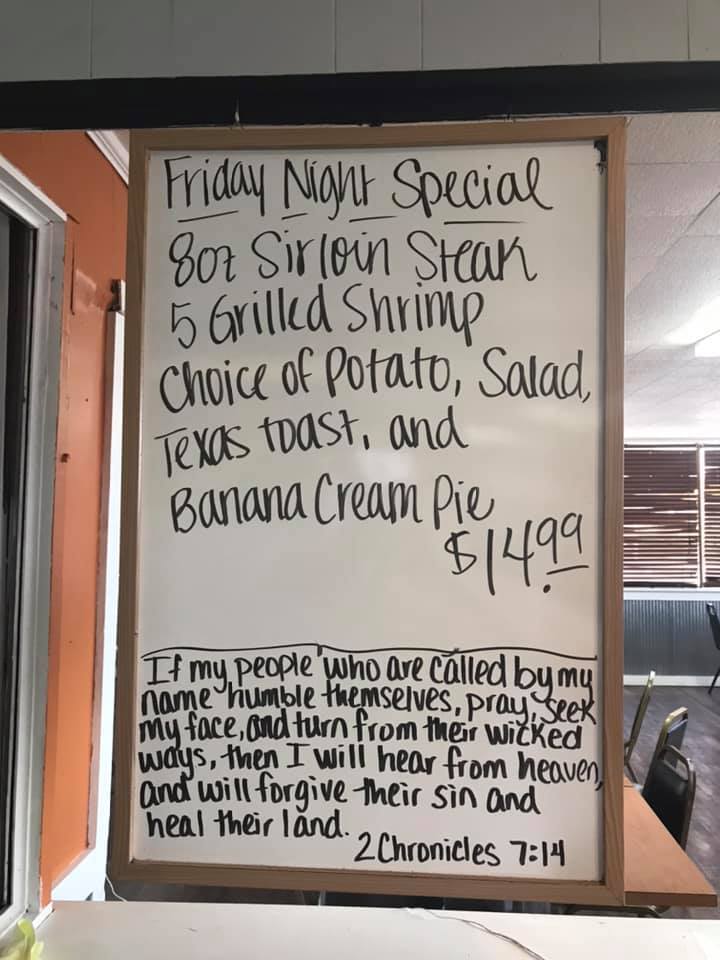 Friday Night Special
8oz Sirloin Steak
5 Grilled Shrimp
Choice of Potato, Salad,
Texas toast, and
Banana Cream Pie
$14.99
If my people who are called by my
name humble themselves, pray, seek
my face, and turn from their wicked
ways, then I will hear from heaven,
and will forgive their sin and
heal their land.
2 Chronicles 7:14